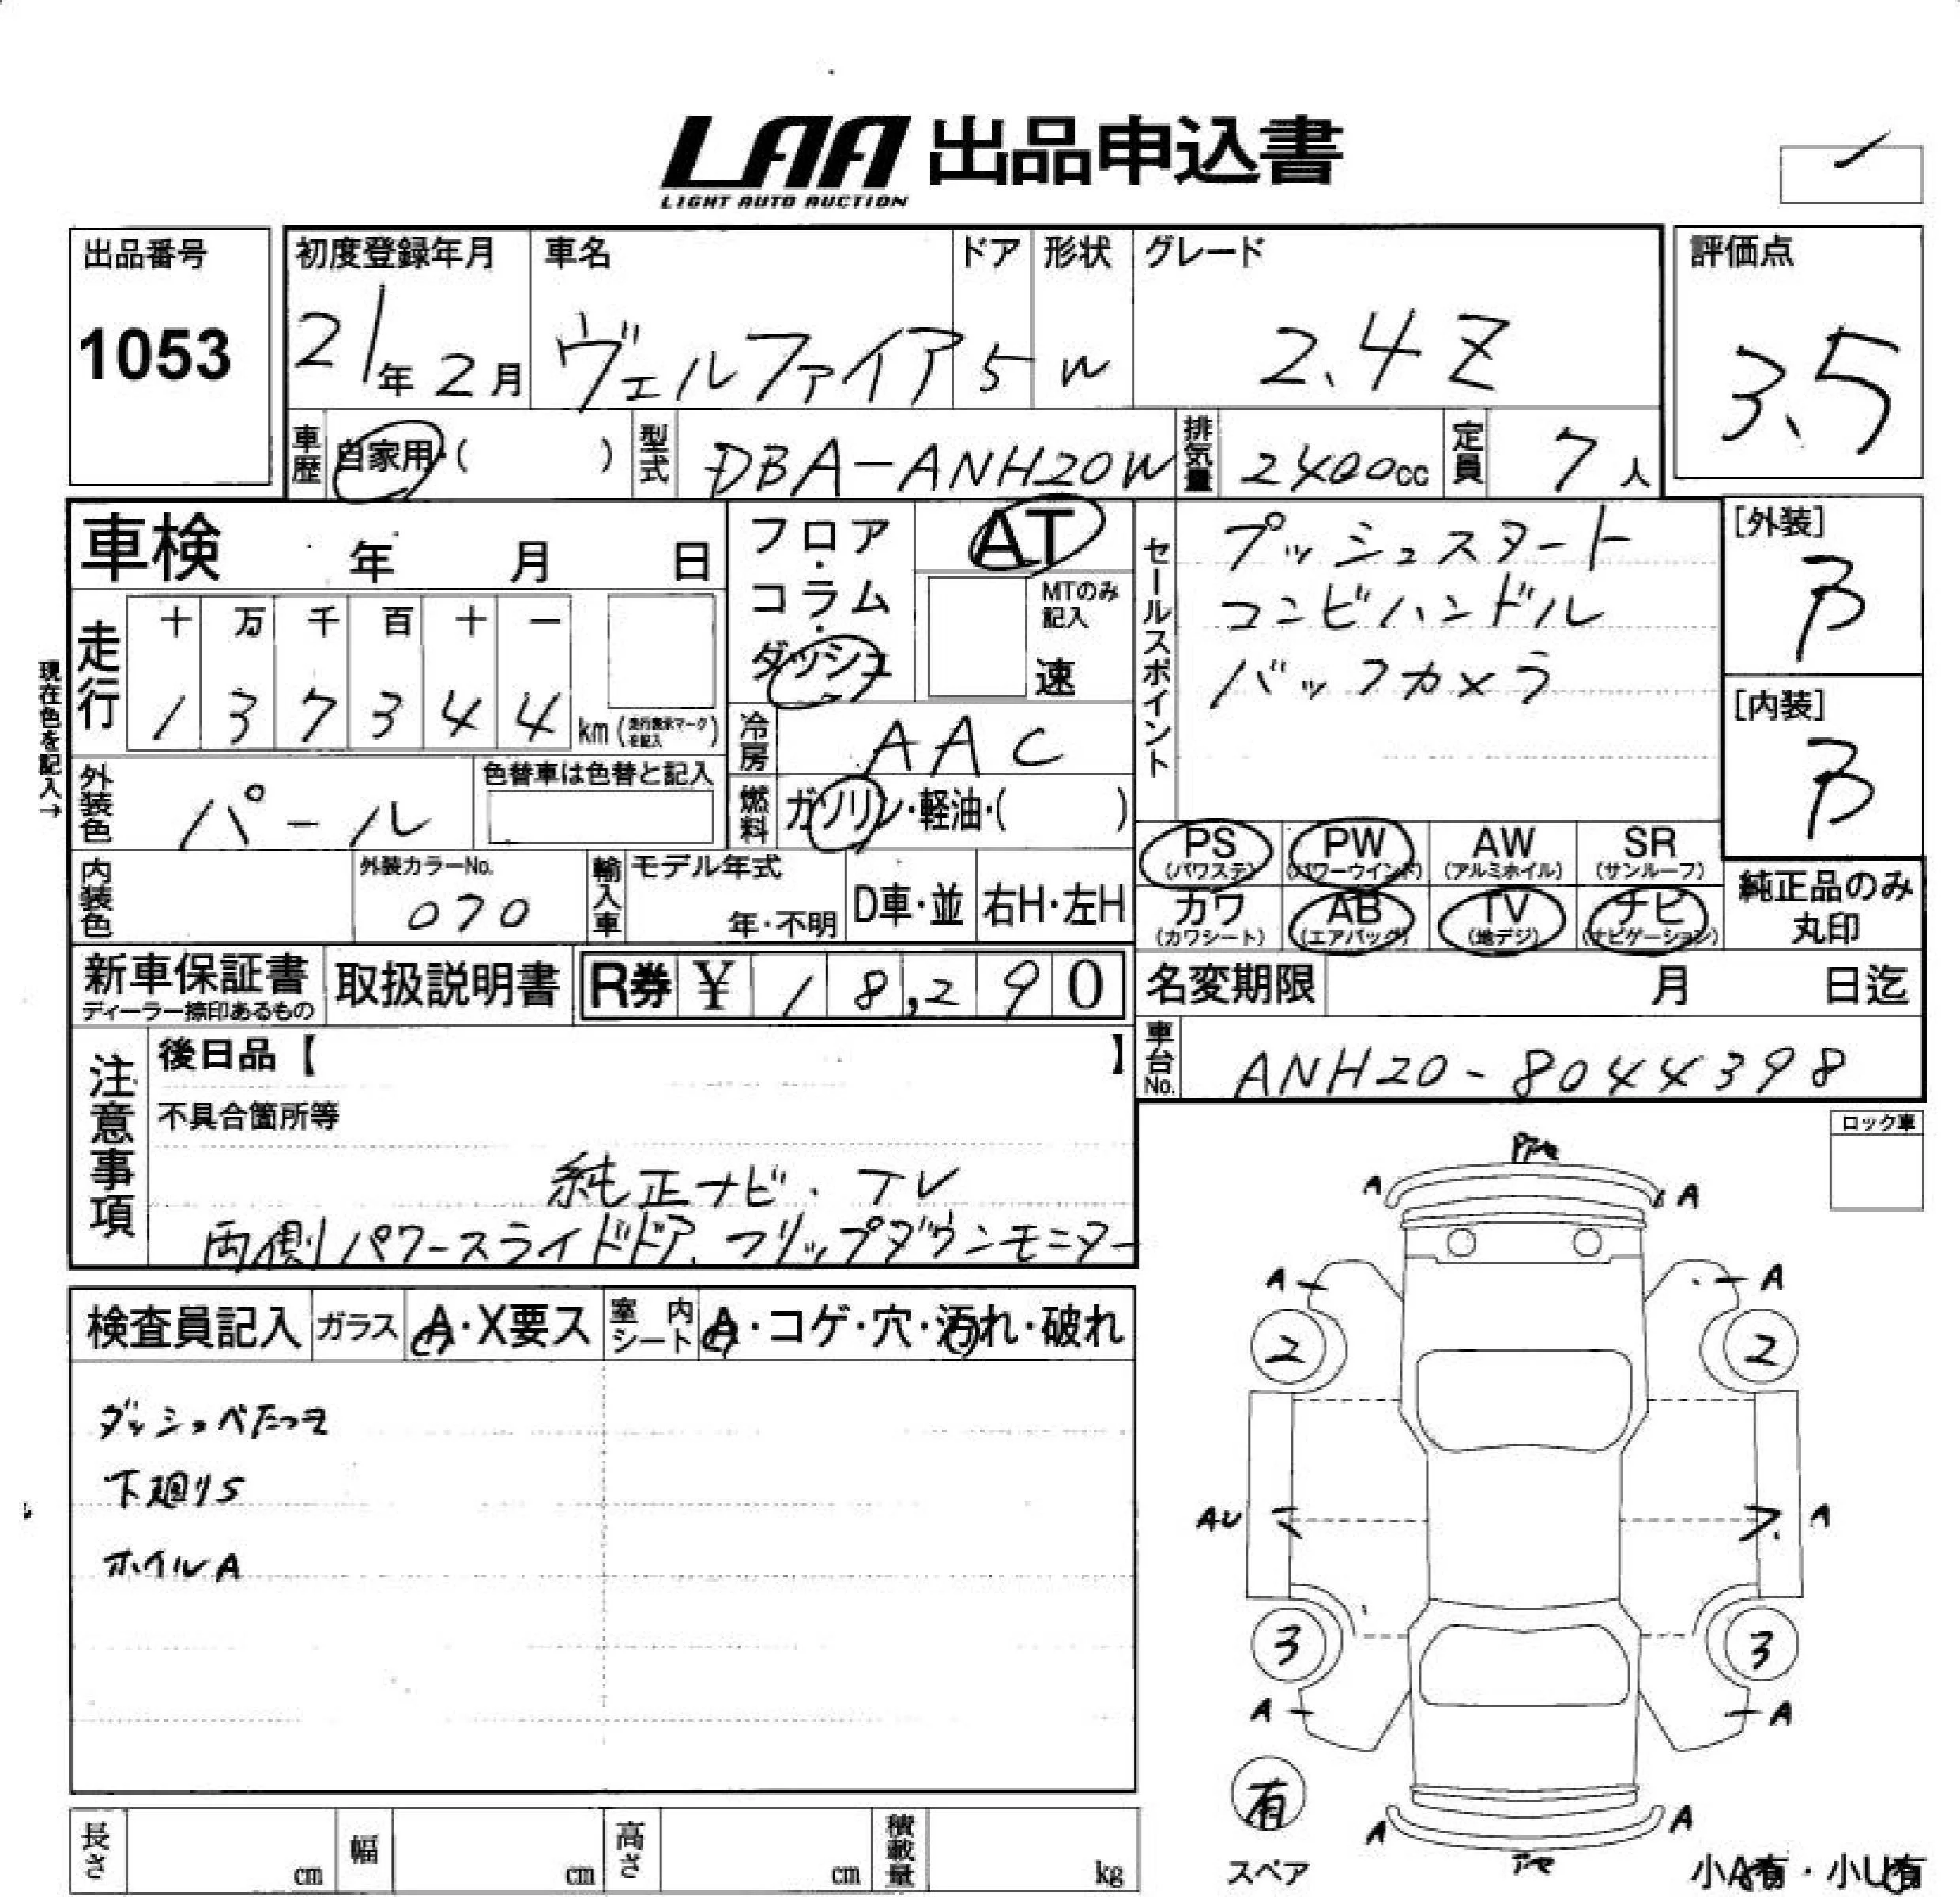 LAA 出品申込書
LIGHT AUTO AUCTION
出品番号
1053
初度登録年月
21年 2月
車名
ヴェルファイア
ドア
5
形状
W
グレード
2.4Z
評価点
3.5
車歴
自家用・( )
型式
DBA-ANH20W
排気量
2400cc
定員
7人
車検 年 月 日
フロア・コラム・ダッシュ
AT
MTのみ記入
速
セールスポイント
プッシュスタート
コンビハンドル
バックカメラ
[外装]
B
[内装]
B
現在色を記入→
走行
十 万 千 百 十 一
1 3 7 3 4 4 km (走行表示マークを記入)
冷房
AAC
外装色
パール
色替車は色替と記入
燃料
ガソリン・軽油・( )
PS (パワステ)
PW (パワーウインド)
AW (アルミホイル)
SR (サンルーフ)
カワ (カワシート)
AB (エアバッグ)
TV (地デジ)
ナビ (ナビゲーション)
純正品のみ
丸印
内装色
外装カラーNo.
070
輸入車
モデル年式
年・不明
D車・並
右H・左H
新車保証書
ディーラー捺印あるもの
取扱説明書
R券 ¥ 18,290
名変期限 月 日迄
車台No.
ANH20-8044398
注意事項
後日品【 】
不具合箇所等
純正ナビ、TV
両側パワースライドドア、フリップダウンモニター
ロック車
検査員記入
ガラス
A・X要ス
室内シート
A・コゲ・穴・汚れ・破れ
下廻りS
ホイルA
A A
A A
2 2
AU A
3 3
A A
有
スペア
A A
小A有・小U有
長さ cm
幅 cm
高さ cm
積載量 kg